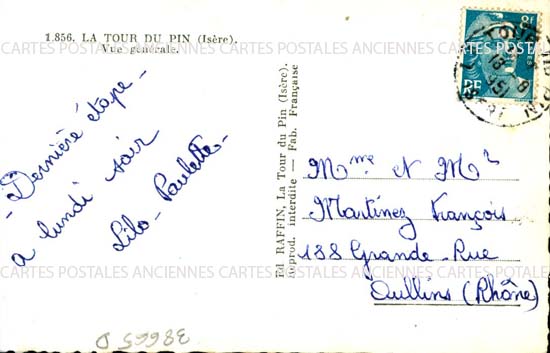 1.856. LA TOUR DU PIN (Isère).
Vue générale.
- Dernière étape -
a lundi soir
Lilo - Paulette -
Ed RAFFIN, La Tour du Pin (Isère).
Reprod. interdite — Fab. Française
RF
Mme et Mr
Martinez François
188 Grande-Rue
Oullins (Rhône)
38665 D
CARTES POSTALES ANCIENNES CARTES POSTALES ANCIENNES
CARTES POSTALES ANCIENNES CARTES POSTALES ANCIENNES